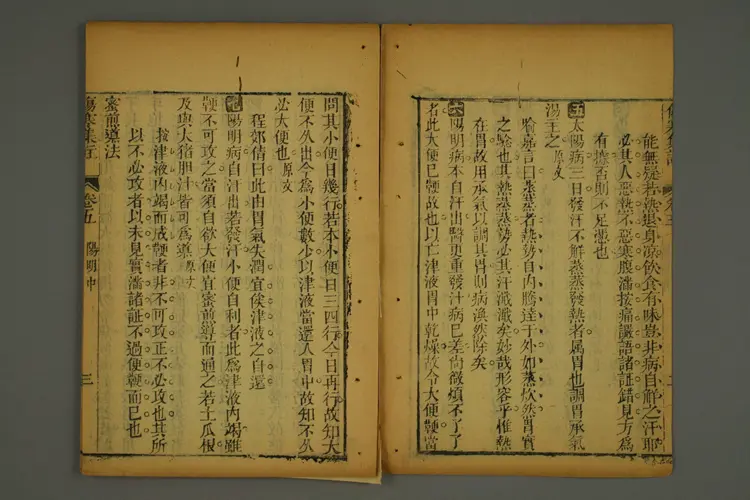 能無疑若熱退身涼飲食有味豈非病自解之汗耶
必其人惡熱不惡寒腹滿按痛讝語諸証錯見方為
有據否則不足憑也
五太陽病三日發汗不解蒸蒸發熱者属胃也調胃承氣
湯主之 原文
喻嘉言曰蒸蒸者熱勢自內騰達于外如蒸炊然胃實
之驗也其熱蒸蒸勢必其汗濈濈矣妙哉形容乎惟熱
在胃故用承氣以調其胃胃調則病渙然除矣
六陽明病本自汗出醫更重發汗病已差尚微煩不了了
者此大便已鞕故也以亡津液胃中乾燥故令大便鞕當
問其小便日幾行若本小便日三四行今日再行故知大
便不久出今為小便數少以津液當還入胃中故知不久
必大便也 原文
程郊倩曰此由胃氣失潤宜俟津液之自還
七陽明病自汗出若發汗小便自利者此為津液內竭雖
鞕不可攻之當須自欲大便宜蜜煎導而通之若土瓜根
及與大猪胆汁皆可為導 原文
按津液內竭而成鞕者非不可攻正不必攻也其所
以不必攻者以未見實滿諸証不過便鞕而已也
蜜煎導法
卷五 陽明中 三